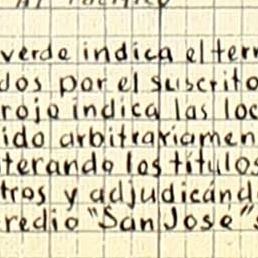 al Pacífico
verde indica el terr
dos por el suscrito
rojo indica las loc
ido arbitrariamen
terando los títulos
tros y adjudicánd
redio "San Jose" s